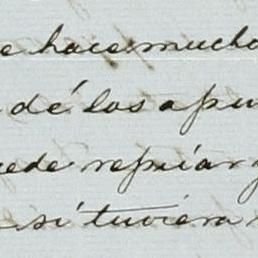 e hace mucho
dé los apu
ede repiar
si tuviera